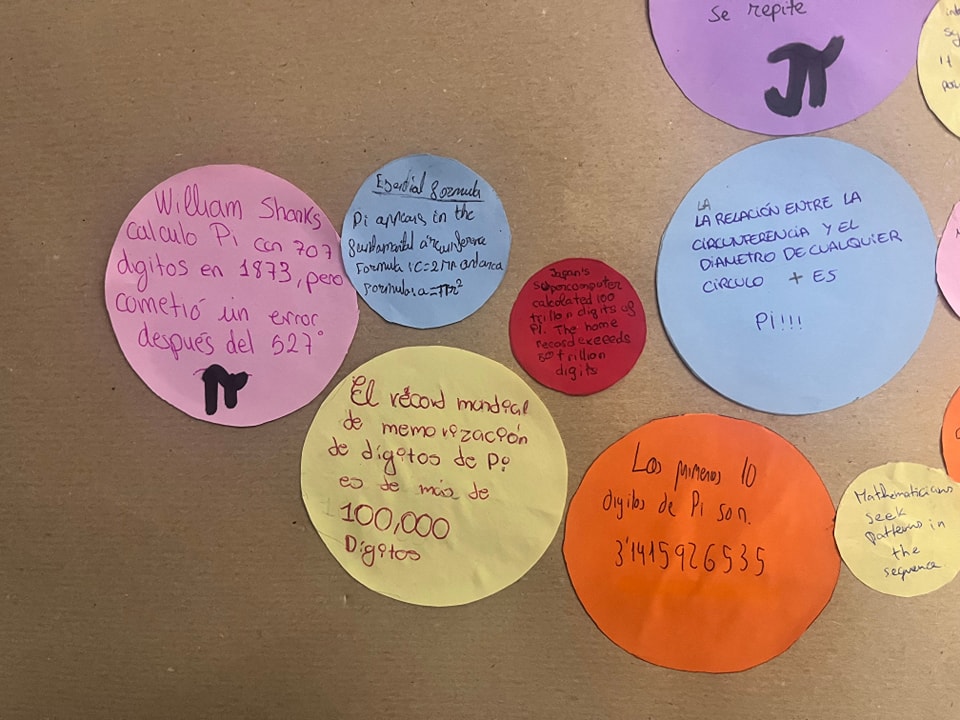 se repite
π
William Shanks
calculo Pi con 707
digitos en 1873, pero
cometió un error
después del 527°
π
Esential formula
Pi appears in the
fundamental circunference
Formula (C=2πr and area
formulas a=πr²
Japan's
supercomputer
calculated 100
trillion digits of
Pi. The home
record exceeds
50 trillion
digits
LA
LA RELACIÓN ENTRE LA
CIRCUNFERENCIA Y EL
DIAMETRO DE CUALQUIER
CÍRCULO + ES
PI!!!
El récord mundial
de memorización
de dígitos de Pi
es de más de
100,000
Dígitos
Los primeros 10
digitos de Pi son.
3'1415926535
Mathematicians
seek
patterns in
the
sequence.